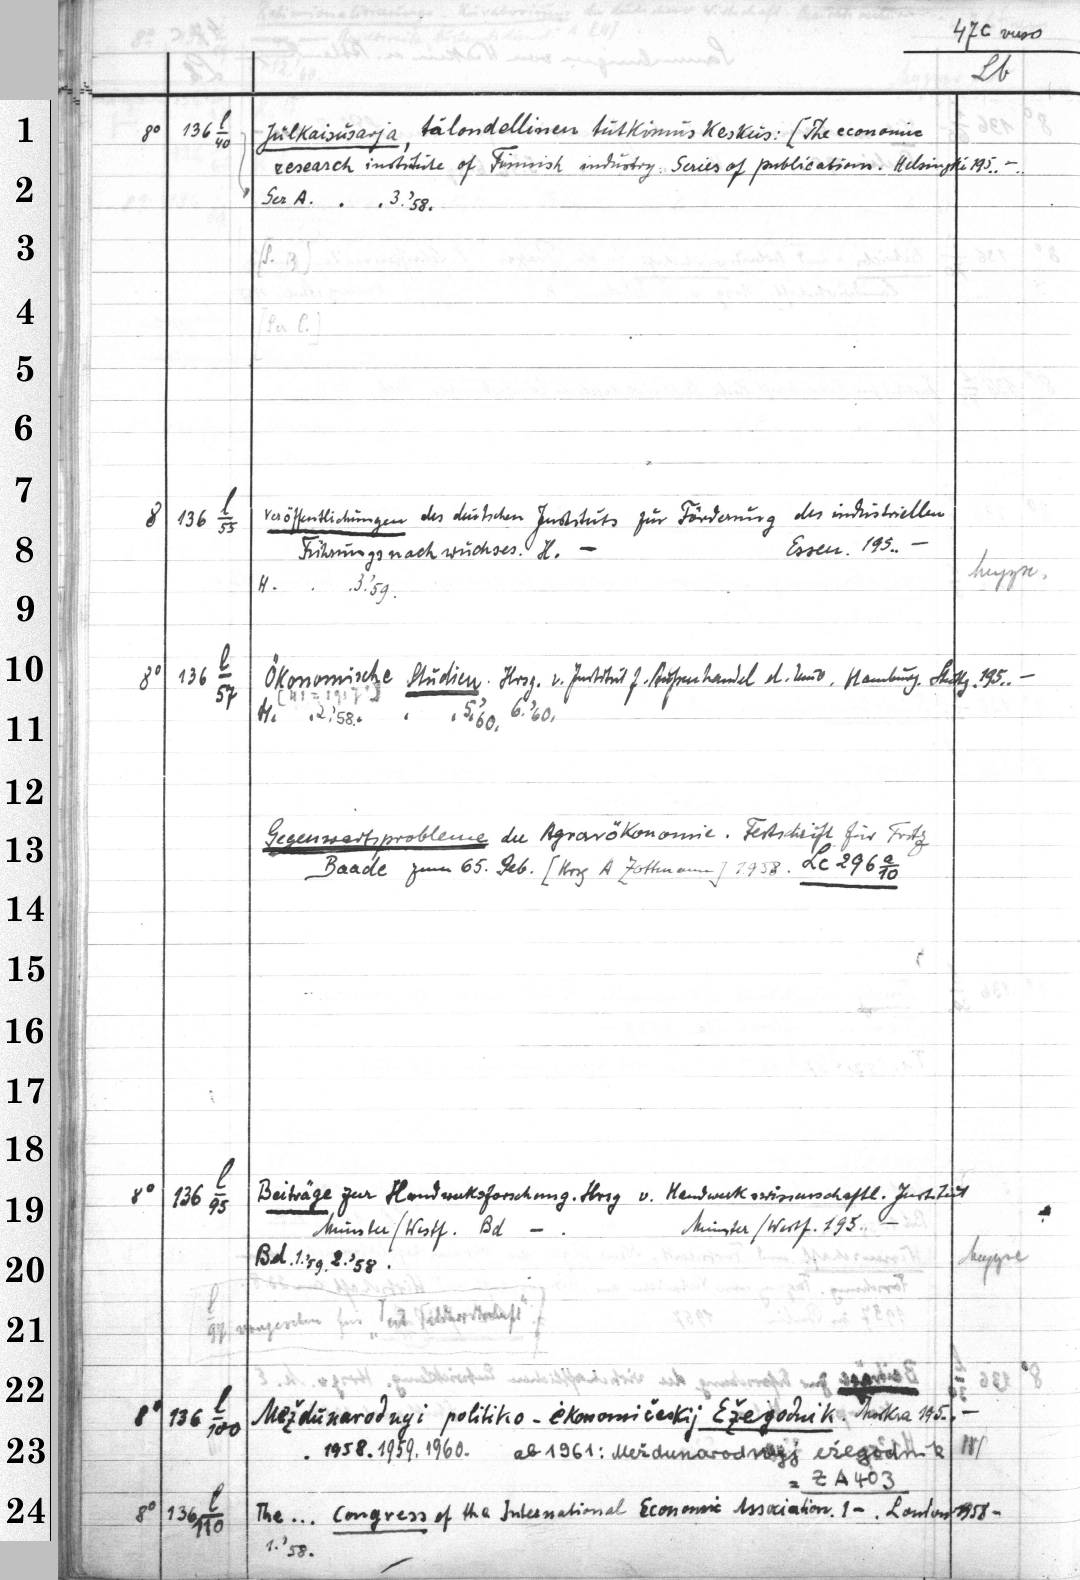 47c verso
Lb
1
8° 136 l/40 Julkaisusarja, talondellinen tutkimus keskus: [The economic
research institute of Finnish industry. Series of publication. Helsingki 195.. -.
2
Ser A. . . 3.'58.
3
[S. B]
4
[Ser C.]
5
6
7
8 136 l/55 Veröffentlichungen des deutschen Instituts zur Förderung des industriellen
8
Führungsnachwuchses. H. - Essen. 195.. -
9
H. . .3.'59.
10
8° 136 l/57 Ökonomische Studien. Hrsg. v. Institut f. Außenhandel d. Univ. Hamburg. Stuttg. 195.. -
H. .2.'58. . .5.'60, 6.'60,
11
12
Gegenwartsprobleme der Agrarökonomie. Festschrift für Fritz
13
Baade zum 65. Geb. [Hrsg A Zottmann] 1958. Lc 296 a/10
14
15
16
17
18
8° 136 l/95 Beiträge zur Handwerksforschung. Hrsg v. Handwerkswissenschaftl. Institut
19
Münster/Westf. Bd - . Münster/Westf. 195.. -
20
Bd. 1.'59. 2.'58.
l/97 vorgesehen für
21
22
8° 136 l/100 Meždunarodnyi politiko-ėkonomičeskij Ežegodnik. Moskva 195.. -
23
. 1958. 1959. 1960. ab 1961: Meždunarodnyj ežegodnik
= ZA 403
24
8° 136 l/110 The ... Congress of the International Economic Association. 1 - . London 1958 -
1.'58.